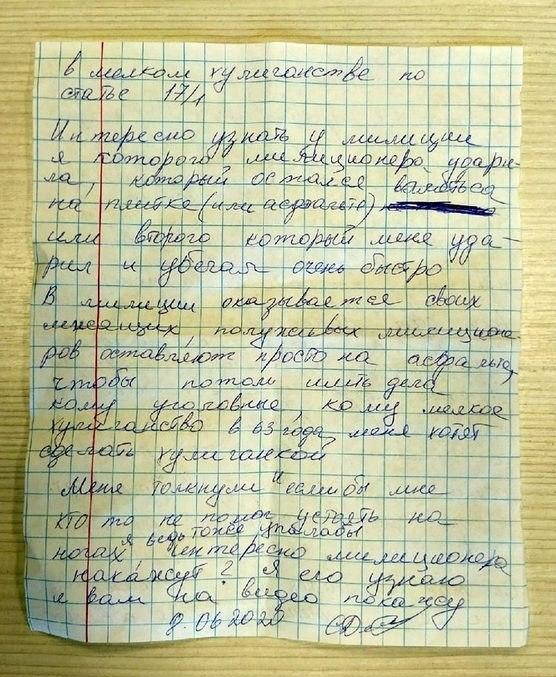 в мелком хулиганстве по
статье 17/1
Интересно узнать у милиции
я которого милиционера удари-
ла, который остался валяться
на плитке (или асфальте)
или второго который меня уда-
рил и убегал очень быстро
В милиции оказывается своих
лежащих, полуживых милиционе-
ров оставляют просто на асфальте,
чтобы потом шить дела
кому уголовные, кому мелкое
хулиганство в 63 года меня хотят
сделать хулиганкой
Меня толкнули и если бы мне
кто то не помог устоять на
я ведь тоже упала бы
ногах интересно милиционера
накажут? Я его узнаю
я вам на видео покажу
9.06 2020